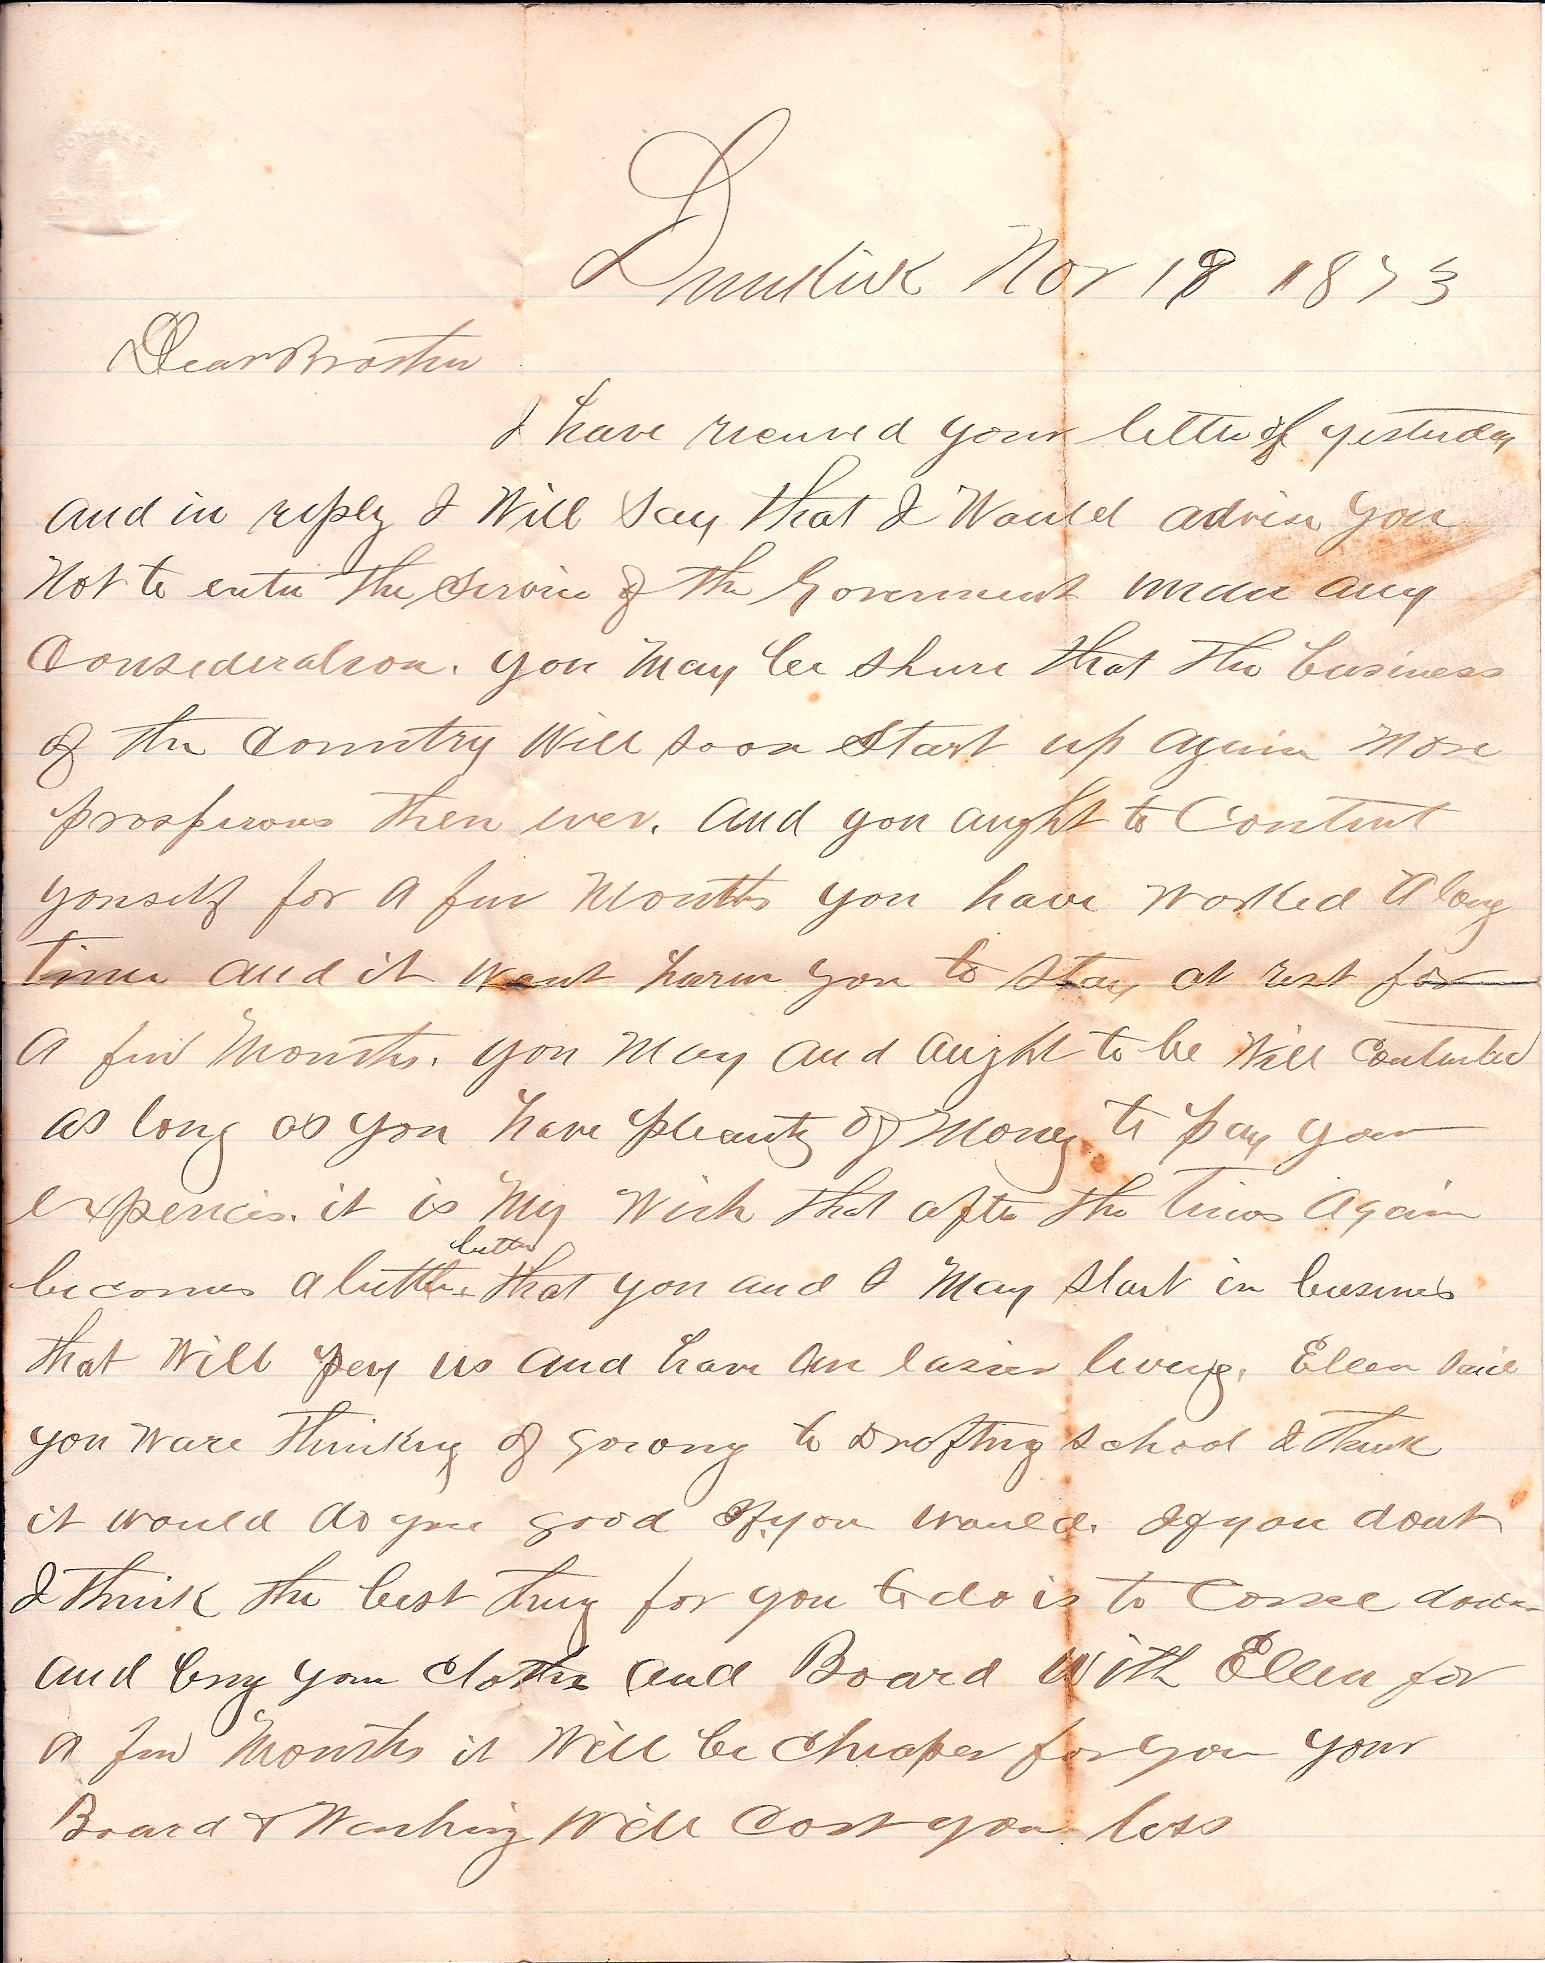 Dunkirk Nov 18 1873
Dear Brother
I have recived your letter of yesterday
and in reply I Will Say that I Would advise you
Not to enter the Service of the Goverment under any
Consideration. you May be shure that the business
of the Country Will soon Start up again More
prosperous then ever. and you aught to Content
yourself for a few Months you have worked a long
time and it wont harm you to stay at rest for
a few Months. you May and aught to be Well contented
as long as you have pleanty of Money to pay your
expences. it is My Wish that after the times again
becomes a little better that you and I May start in business
that Will pay us and have an easier living. Ellen said
you ware thinking of going to Drafting school I think
it would do you good If you would. If you dont
I think the best thing for you to do is to Come down
and bring your clothes and Board With Ellen for
a few Months it Will be cheaper for you your
Board & Washing Will Cost you less